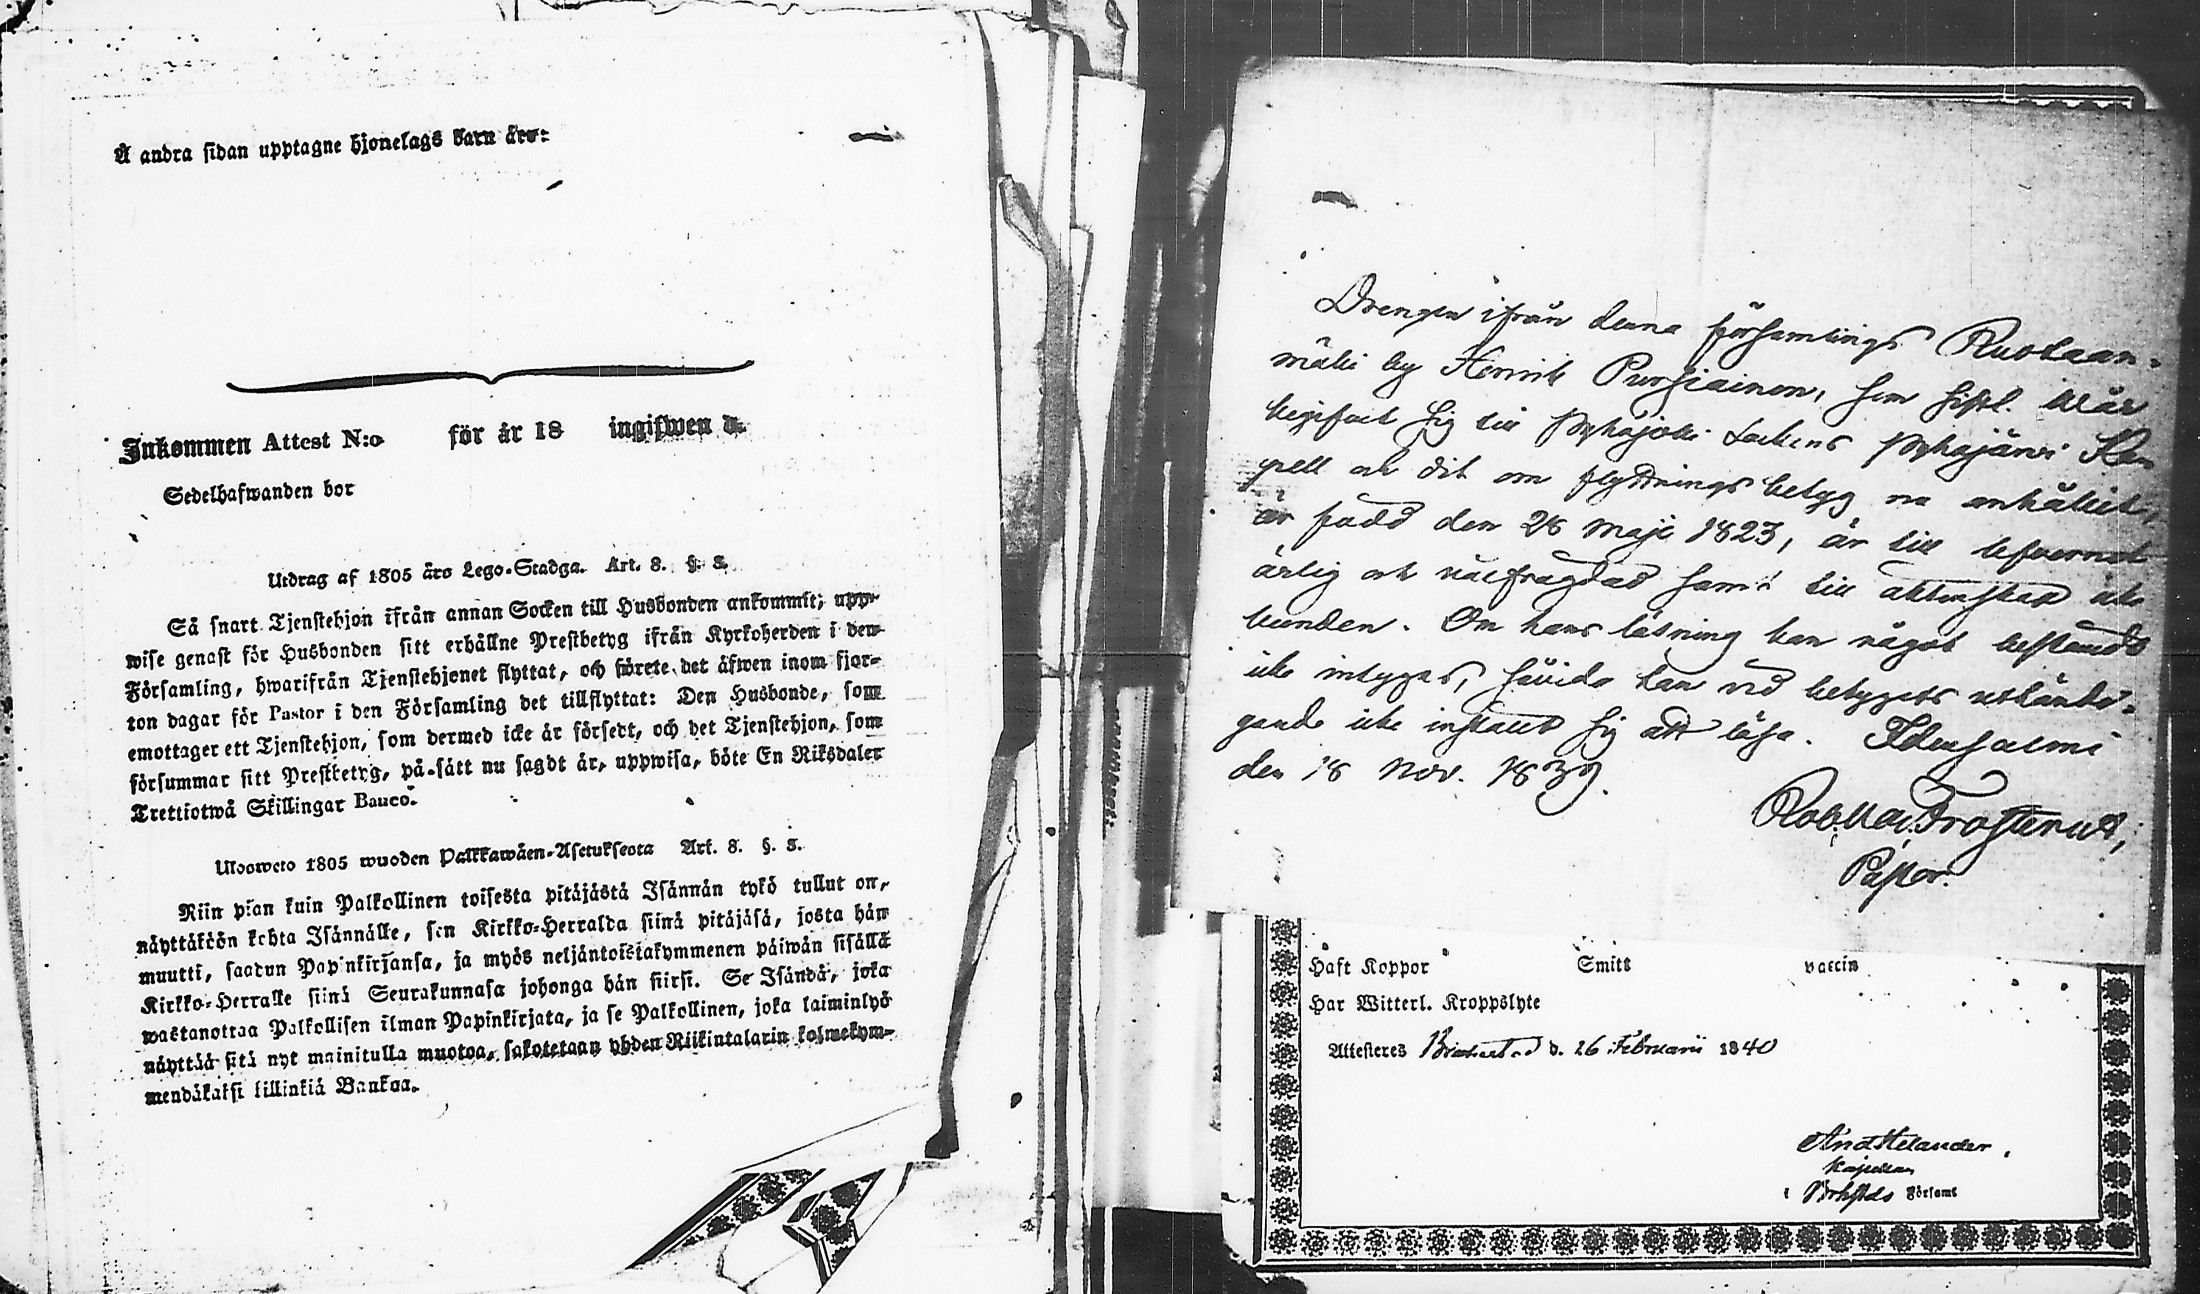 Å andra sidan upptagne hjonelags barn äro:
Inkommen Attest N:o för år 18 ingifwen d.
Sedelhafwanden bor
Utdrag af 1805 års Lego-Stadga. Art. 8. §. 3.
Så snart Tjenstehjon ifrån annan Socken till Husbonden ankommit, upp-
wise genast för Husbonden sitt erhållne Prestbetyg ifrån Kyrkoherden i den
Församling, hwarifrån Tjenstehjonet flyttat, och förete det äfwen inom fjor-
ton dagar för Pastor i den Församling det tillflyttat: Den Husbonde, som
emottager ett Tjenstehjon, som dermed icke är försedt, och det Tjenstehjon, som
försummar sitt Prestbetyg, på sätt nu sagdt är, uppwisa, böte En Riksdaler
Trettiotwå Skillingar Banco.
Ulosweto 1805 wuoden Palkkawäen-Asetuksesta Art. 8. §. 3.
Niin pian kuin Palkollinen toisesta pitäjästä Isännän tykö tullut on,
näyttäköön kohta Isännälle, sen Kirkko-Herralda siinä pitäjäsä, josta hän
muutti, saadun Papinkirjansa, ja myös neljäntoistakymmenen päiwän sisällä
Kirkko-Herralle siinä Seurakunnasa johonga hän siirsi. Se Isändä, joka
wastanottaa Palkollisen ilman Papinkirjata, ja se Palkollinen, joka laiminlyö
näyttää sitä nyt mainitulla muotoa, sakotetaan yhden Riikintalarin kolmekym-
mendäkaksi killinkiä Bankoa.
Drengen ifrån denna församlings Ruotaan-
mäki by Henrik Pursiainen, som sistl. wår
begifvit sig till Pyhäjoki Sockens Pyhäjärvi Ka-
pell och dit om flyttningsbetyg nu anhållit,
är född den 28 Maji 1823, är till lefvernet
ärlig och välfrägdad samt till äktenskap icke
bunden. Om hans läsning kan något bestämdt
icke intygas, såvida han vid betygets utbänd-
gande icke instält sig att läsa. Idensalmi
den 18 Nov. 1839.
Rob. Val. Frosterus,
Pastor.
Haft Koppor Smitt vaccin
Har Witterl. Kroppslyte
Attesteres Brahestad d. 26 Februarii 1840
And Helander
Kapellan
i Brhstds Församl